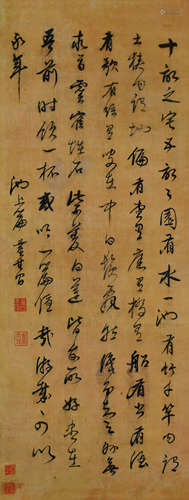 十畝之宅五畝之園有水一池有竹千竿勿謂
土狹勿謂地偏有堂有庭有橋有船有書有酒
有歌有弦有叟在中白鬚飄然識分知足外無
求焉靈鶴怪石紫菱白蓮皆吾所好盡在
吾前時飲一杯或吟一篇優哉游哉可以
永年
池上篇 董其昌